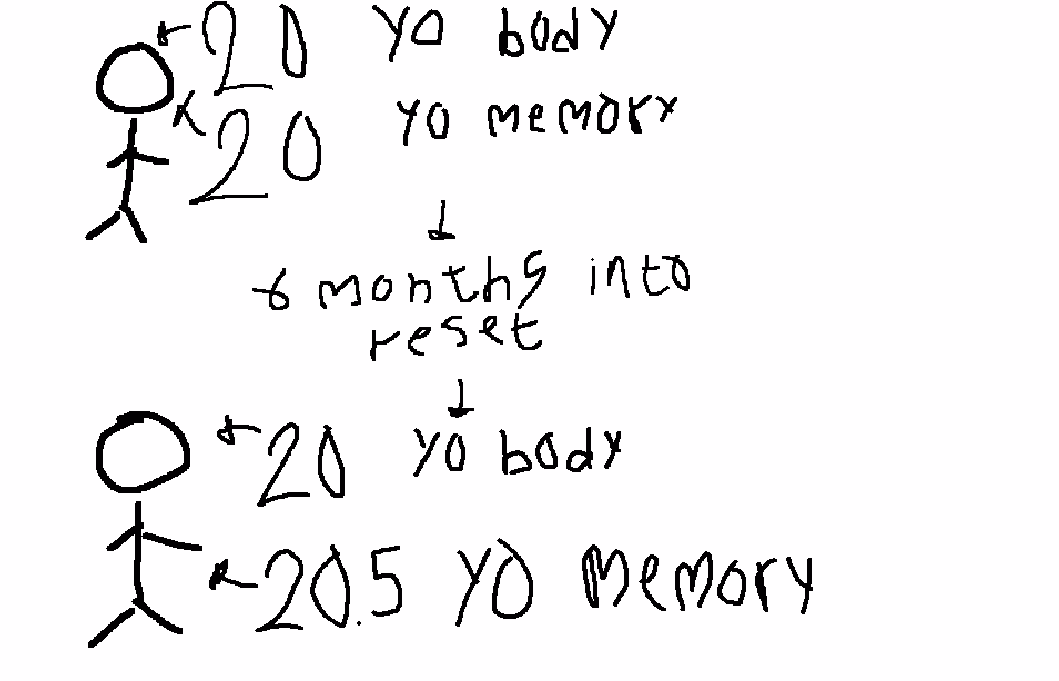 20 yo body
20 yo memory
6 months into
reset
20 yo body
20.5 yo memory